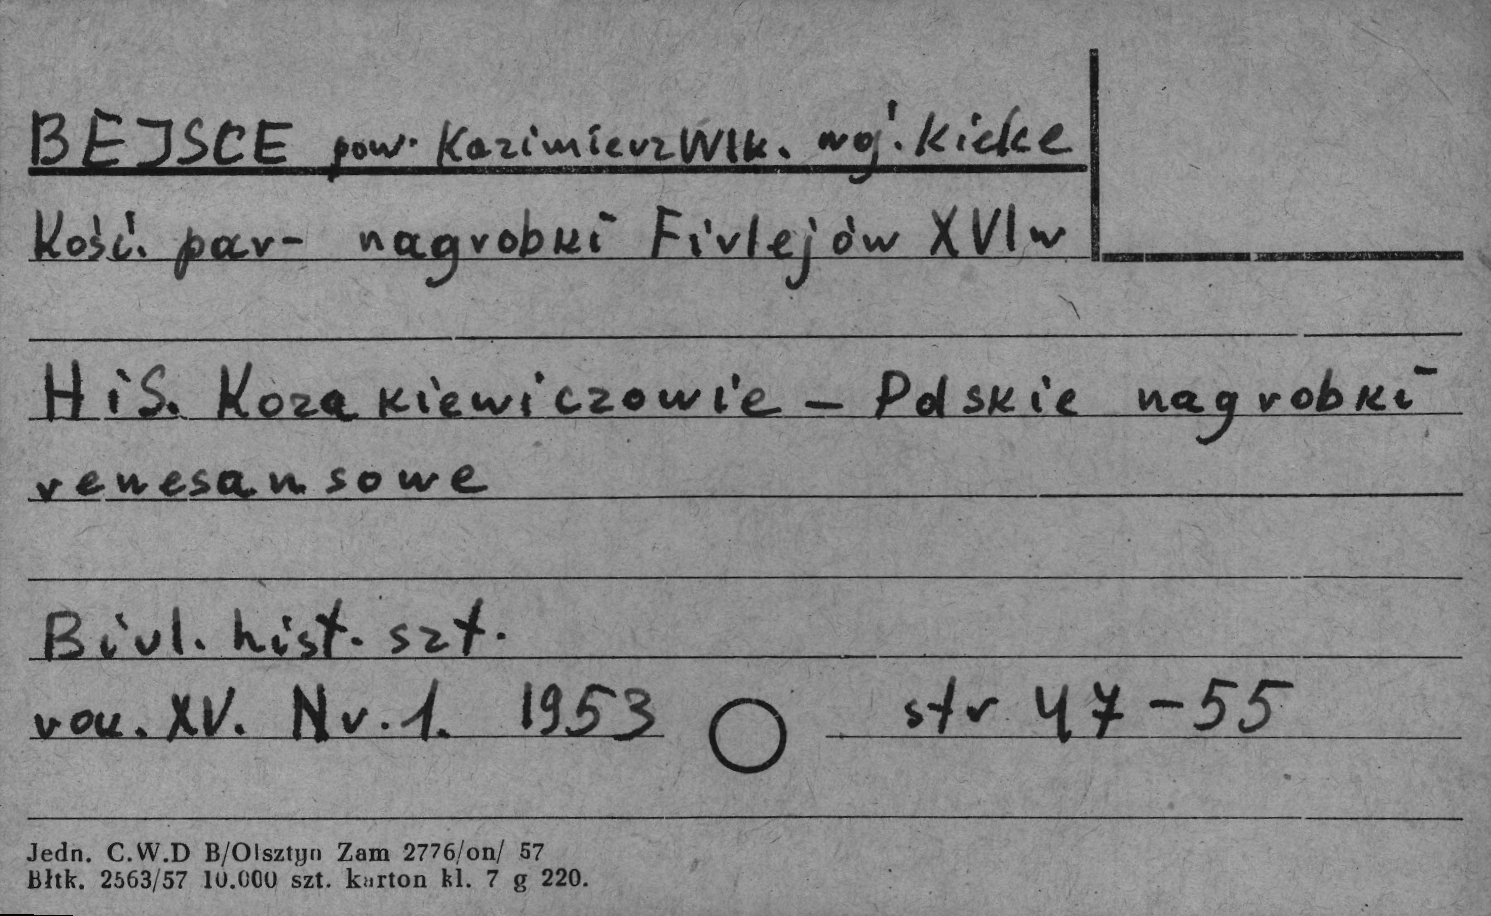 BEJSCE pow. Kazimierz Wlk. woj. Kielce
Kość. par- nagrobki Firlejów XVI w
H i S. Kozakiewiczowie – Polskie nagrobki
renesansowe
Biul. hist. szt.
rok. XV. Nr. 1. 1953 str 47-55
Jedn. C.W.D B/Olsztyn Zam 2776/on/ 57
Błtk. 2563/57 10.000 szt. karton kl. 7 g 220.